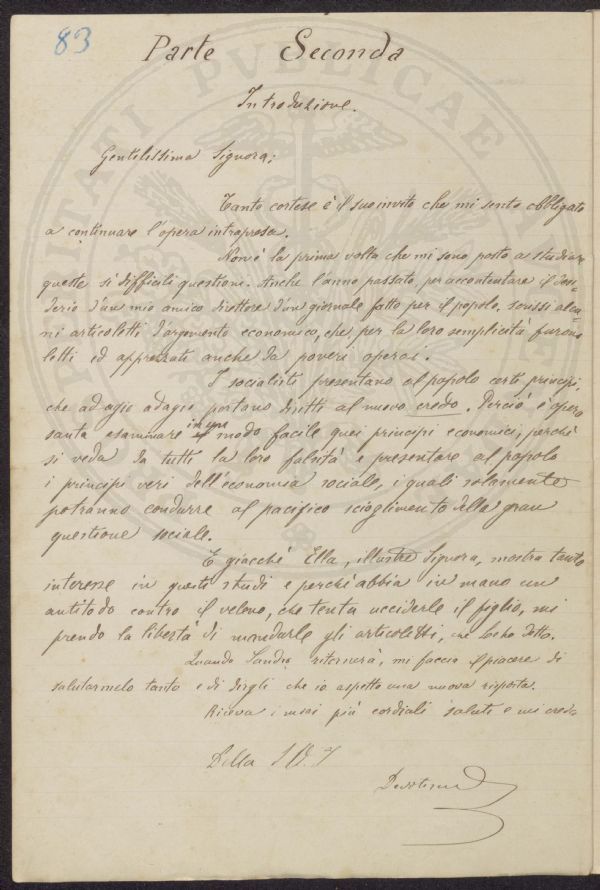 83
Parte Seconda
Introduzione.
Gentilissima Signora;
Tanto cortese è il suo invito che mi sento obbligato
a continuare l'opera intrapresa.
Non è la prima volta che mi sono posto a studiare
queste sì difficili questioni. Anche l'anno passato, per accontentare il desi-
derio d'un mio amico direttore d'un giornale fatto per il popolo, scrissi alcu-
ni articoletti d'argomento economico, che, per la loro semplicità furono
letti ed apprezzati anche da poveri operai.
I socialisti presentano al popolo certi principi,
che adagio adagio, portano diritti al nuovo credo. Perciò è opera
santa esaminare in un modo facile quei principi economici, perchè
si veda da tutti la loro falsità e presentare al popolo
i principi veri dell'economia sociale, i quali solamente
potranno condurre al pacifico scioglimento della gran
questione sociale.
E giacchè Ella, illustre Signora, mostra tanto
interesse in questi studi e perchè abbia in mano un
antitodo contro il veleno, che tenta ucciderle il figlio, mi
prendo la libertà di mandarle gli articoletti, che Le ho detto.
Quando Sandro ritornerà, mi faccia il piacere di
salutarmelo tanto e di dirgli che io aspetto una nuova risposta.
Riceva i miei più cordiali saluti e mi creda
Della S. V. I